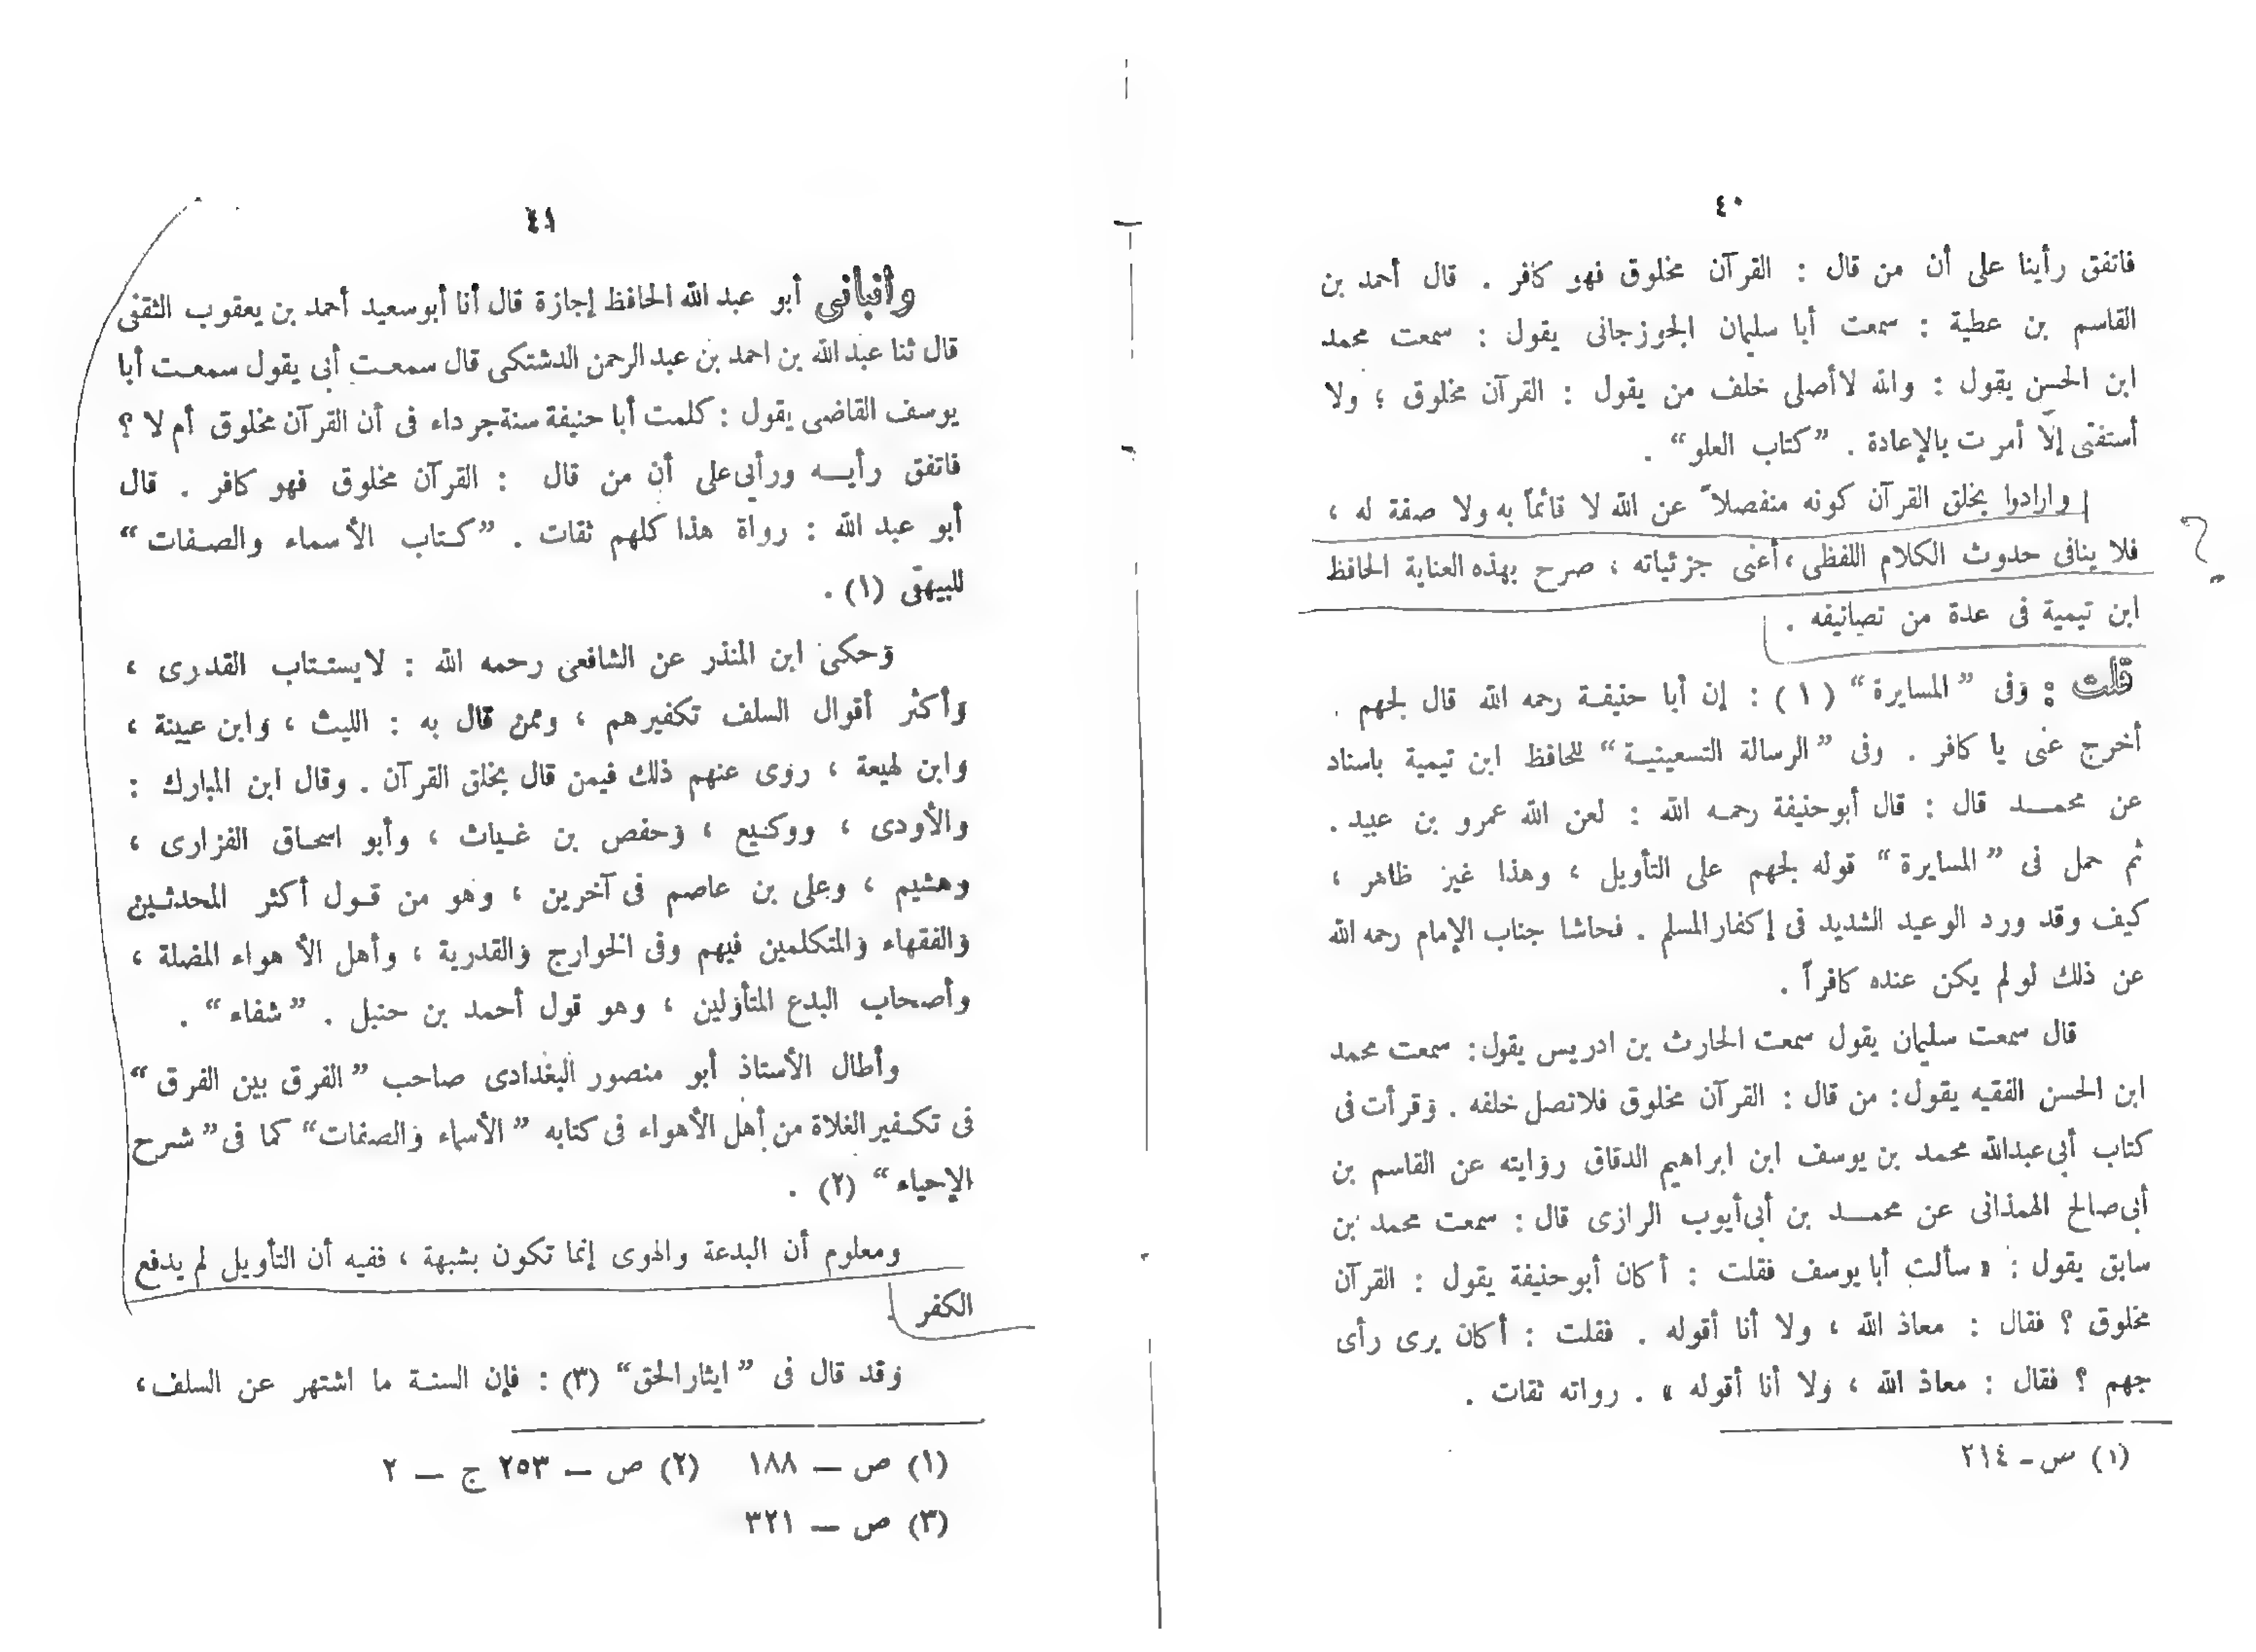 ٤٠
فاتفق رأينا على أن من قال : القرآن مخلوق فهو كافر . قال أحمد بن
القاسم بن عطية : سمعت أبا سليمان الجوزجانى يقول : سمعت محمد
ابن الحسن يقول : والله لاأصلى خلف من يقول : القرآن مخلوق ؛ ولا
أستفتى إلّا أمرت بالإعادة . ”كتاب العلو“ .
وارادوا بخلق القرآن كونه منفصلاً عن الله لا قائماً به ولا صفة له ،
فلا ينافى حدوث الكلام اللفظى ، أعنى جزئياته ، صرح بهذه العناية الحافظ
ابن تيمية فى عدة من تصانيفه .
قلت : وفى ”المسايرة“ (١) : إن أبا حنيفة رحمه الله قال لجهم .
أخرج عنى يا كافر . وفى ”الرسالة التسعينية“ للحافظ ابن تيمية باسناد
عن محمد قال : قال أبوحنيفة رحمه الله : لعن الله عمرو بن عبيد .
ثم حمل فى ”المسايرة“ قوله لجهم على التأويل ، وهذا غيز ظاهر ،
كيف وقد ورد الوعيد الشديد فى إكفارالمسلم . فحاشا جناب الإمام رحمه الله
عن ذلك لولم يكن عنده كافراً .
قال سمعت سليمان يقول سمعت الحارث بن ادريس يقول : سمعت محمد
ابن الحسن الفقيه يقول : من قال : القرآن مخلوق فلاتصل خلفه . وقرأت فى
كتاب أبى عبدالله محمد بن يوسف ابن ابراهيم الدقاق روايته عن القاسم بن
أبى صالح الهمذانى عن محمد بن أبى أيوب الرازى قال : سمعت محمد بن
سابق يقول : « سألت أبا يوسف فقلت : أكان أبوحنيفة يقول : القرآن
مخلوق ؟ فقال : معاذ الله ، ولا أنا أقوله . فقلت : أكان يرى رأى
جهم ؟ فقال : معاذ الله ، ولا أنا أقوله » . رواته ثقات .
(١) س ـ ٢١٤
٤١
وأنبأنى أبو عبد الله الحافظ إجازة قال أنا أبوسعيد أحمد بن يعقوب الثقفى
قال ثنا عبد الله بن احمد بن عبد الرحمن الدشتكى قال سمعت أبى يقول سمعت أبا
يوسف القاضى يقول : كلمت أبا حنيفة سنة جرداء فى أن القرآن مخلوق أم لا ؟
فاتفق رأيه ورأيى على أن من قال : القرآن مخلوق فهو كافر . قال
أبو عبد الله : رواة هذا كلهم ثقات . ”كتاب الأسماء والصفات“
للبيهقى (١) .
وحكى ابن المنذر عن الشافعى رحمه الله : لايستتاب القدرى ،
وأكثر أقوال السلف تكفيرهم ، وممن قال به : الليث ، وابن عيينة ،
وابن لهيعة ، روى عنهم ذلك فيمن قال بخلق القرآن . وقال ابن المبارك :
والأودى ، ووكيع ، وحفص بن غياث ، وأبو اسحاق الفزارى ،
وهشيم ، وعلى بن عاصم فى آخرين ، وهو من قول أكثر المحدثين
والفقهاء والمتكلمين فيهم وفى الخوارج والقدرية ، وأهل الأهواء المضلة ،
وأصحاب البدع المتأولين ، وهو قول أحمد بن حنبل . ”شفاء“ .
وأطال الأستاذ أبو منصور البغدادى صاحب ”الفرق بين الفرق“
فى تكفير الغلاة من أهل الأهواء فى كتابه ”الأسماء والصفات“ كما فى ”شرح
الإحياء“ (٢) .
ومعلوم أن البدعة والهوى إنما تكون بشبهة ، ففيه أن التأويل لم يدفع
الكفر .
وقد قال فى ”ايثارالحق“ (٣) : فإن السنة ما اشتهر عن السلف ،
(١) ص — ١٨٨ (٢) ص — ٢٥٣ ج — ٢
(٣) ص — ٣٢١